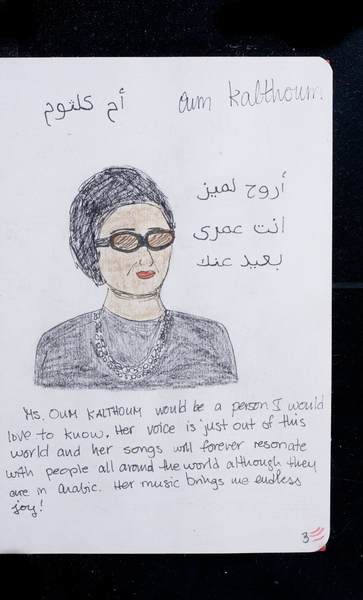 أم كلثوم
oum kalthoum.
أروح لمين
انت عمرى
بعيد عنك
Ms. Oum Kalthoum would be a person I would
love to know. Her voice is just out of this
world and her songs will forever resonate
with people all around the world although they
are in Arabic. Her music brings me endless
joy!
3